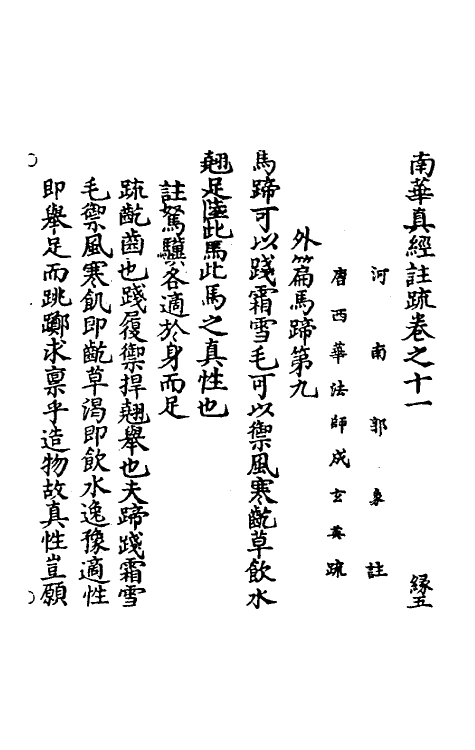 南華真經註疏卷之十一 緣五
河南郭象註
唐西華法師成玄英疏
外篇馬蹄第九
馬蹄可以踐霜雪毛可以禦風寒齕草飲水
翹足而陸此馬之真性也
註駑驥各適於身而足
疏齕齒也踐履禦捍翹舉也夫蹄踐霜雪
毛禦風寒飢即齕草渴即飲水逸豫適性
即舉足而跳躑求稟乎造物故真性豈願